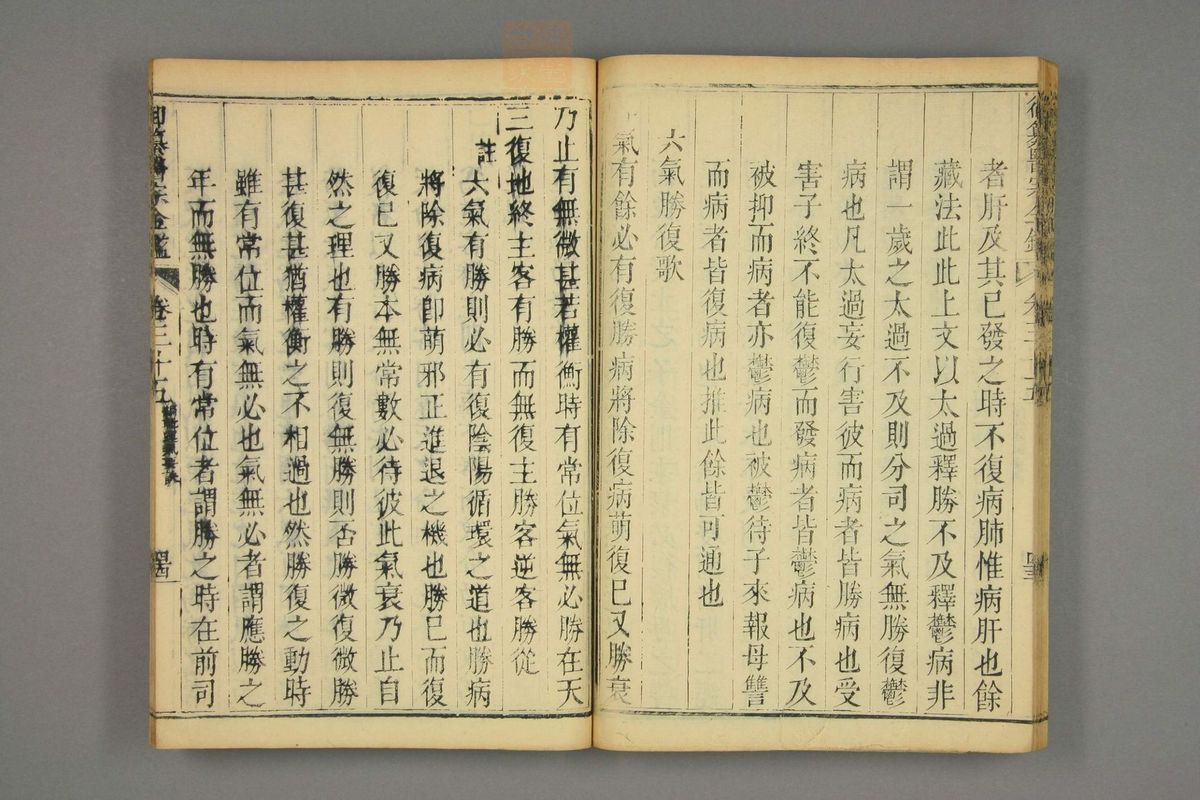 者肝及其已發之時不復病肺惟病肝也餘
藏法此此上文以太過釋勝不及釋鬱病非
謂一歲之太過不及則分司之氣無勝復鬱
病也凡太過妄行害彼而病者皆勝病也受
害子終不能復鬱而發病者皆鬱病也不及
被抑而病者亦鬱病也被鬱待子來報母讐
而病者皆復病也推此餘皆可通也
六氣勝復歌
氣有餘必有復勝病將除復病萌復已又勝衰
乃止有無微甚若權衡時有常位氣無必勝在天
三復地終主客有勝而無復主勝客逆客勝從
註六氣有勝則必有復陰陽循環之道也勝病
將除復病卽萌邪正進退之機也勝已而復
復已又勝本無常數必待彼此氣衰乃止自
然之理也有勝則復無勝則否勝微復微勝
甚復甚猶權衡之不相過也然勝復之動時
雖有常位而氣無必也氣無必者謂應勝之
年而無勝也時有常位者謂勝之時在前司
御纂醫宗金鑑 卷三十五 四古